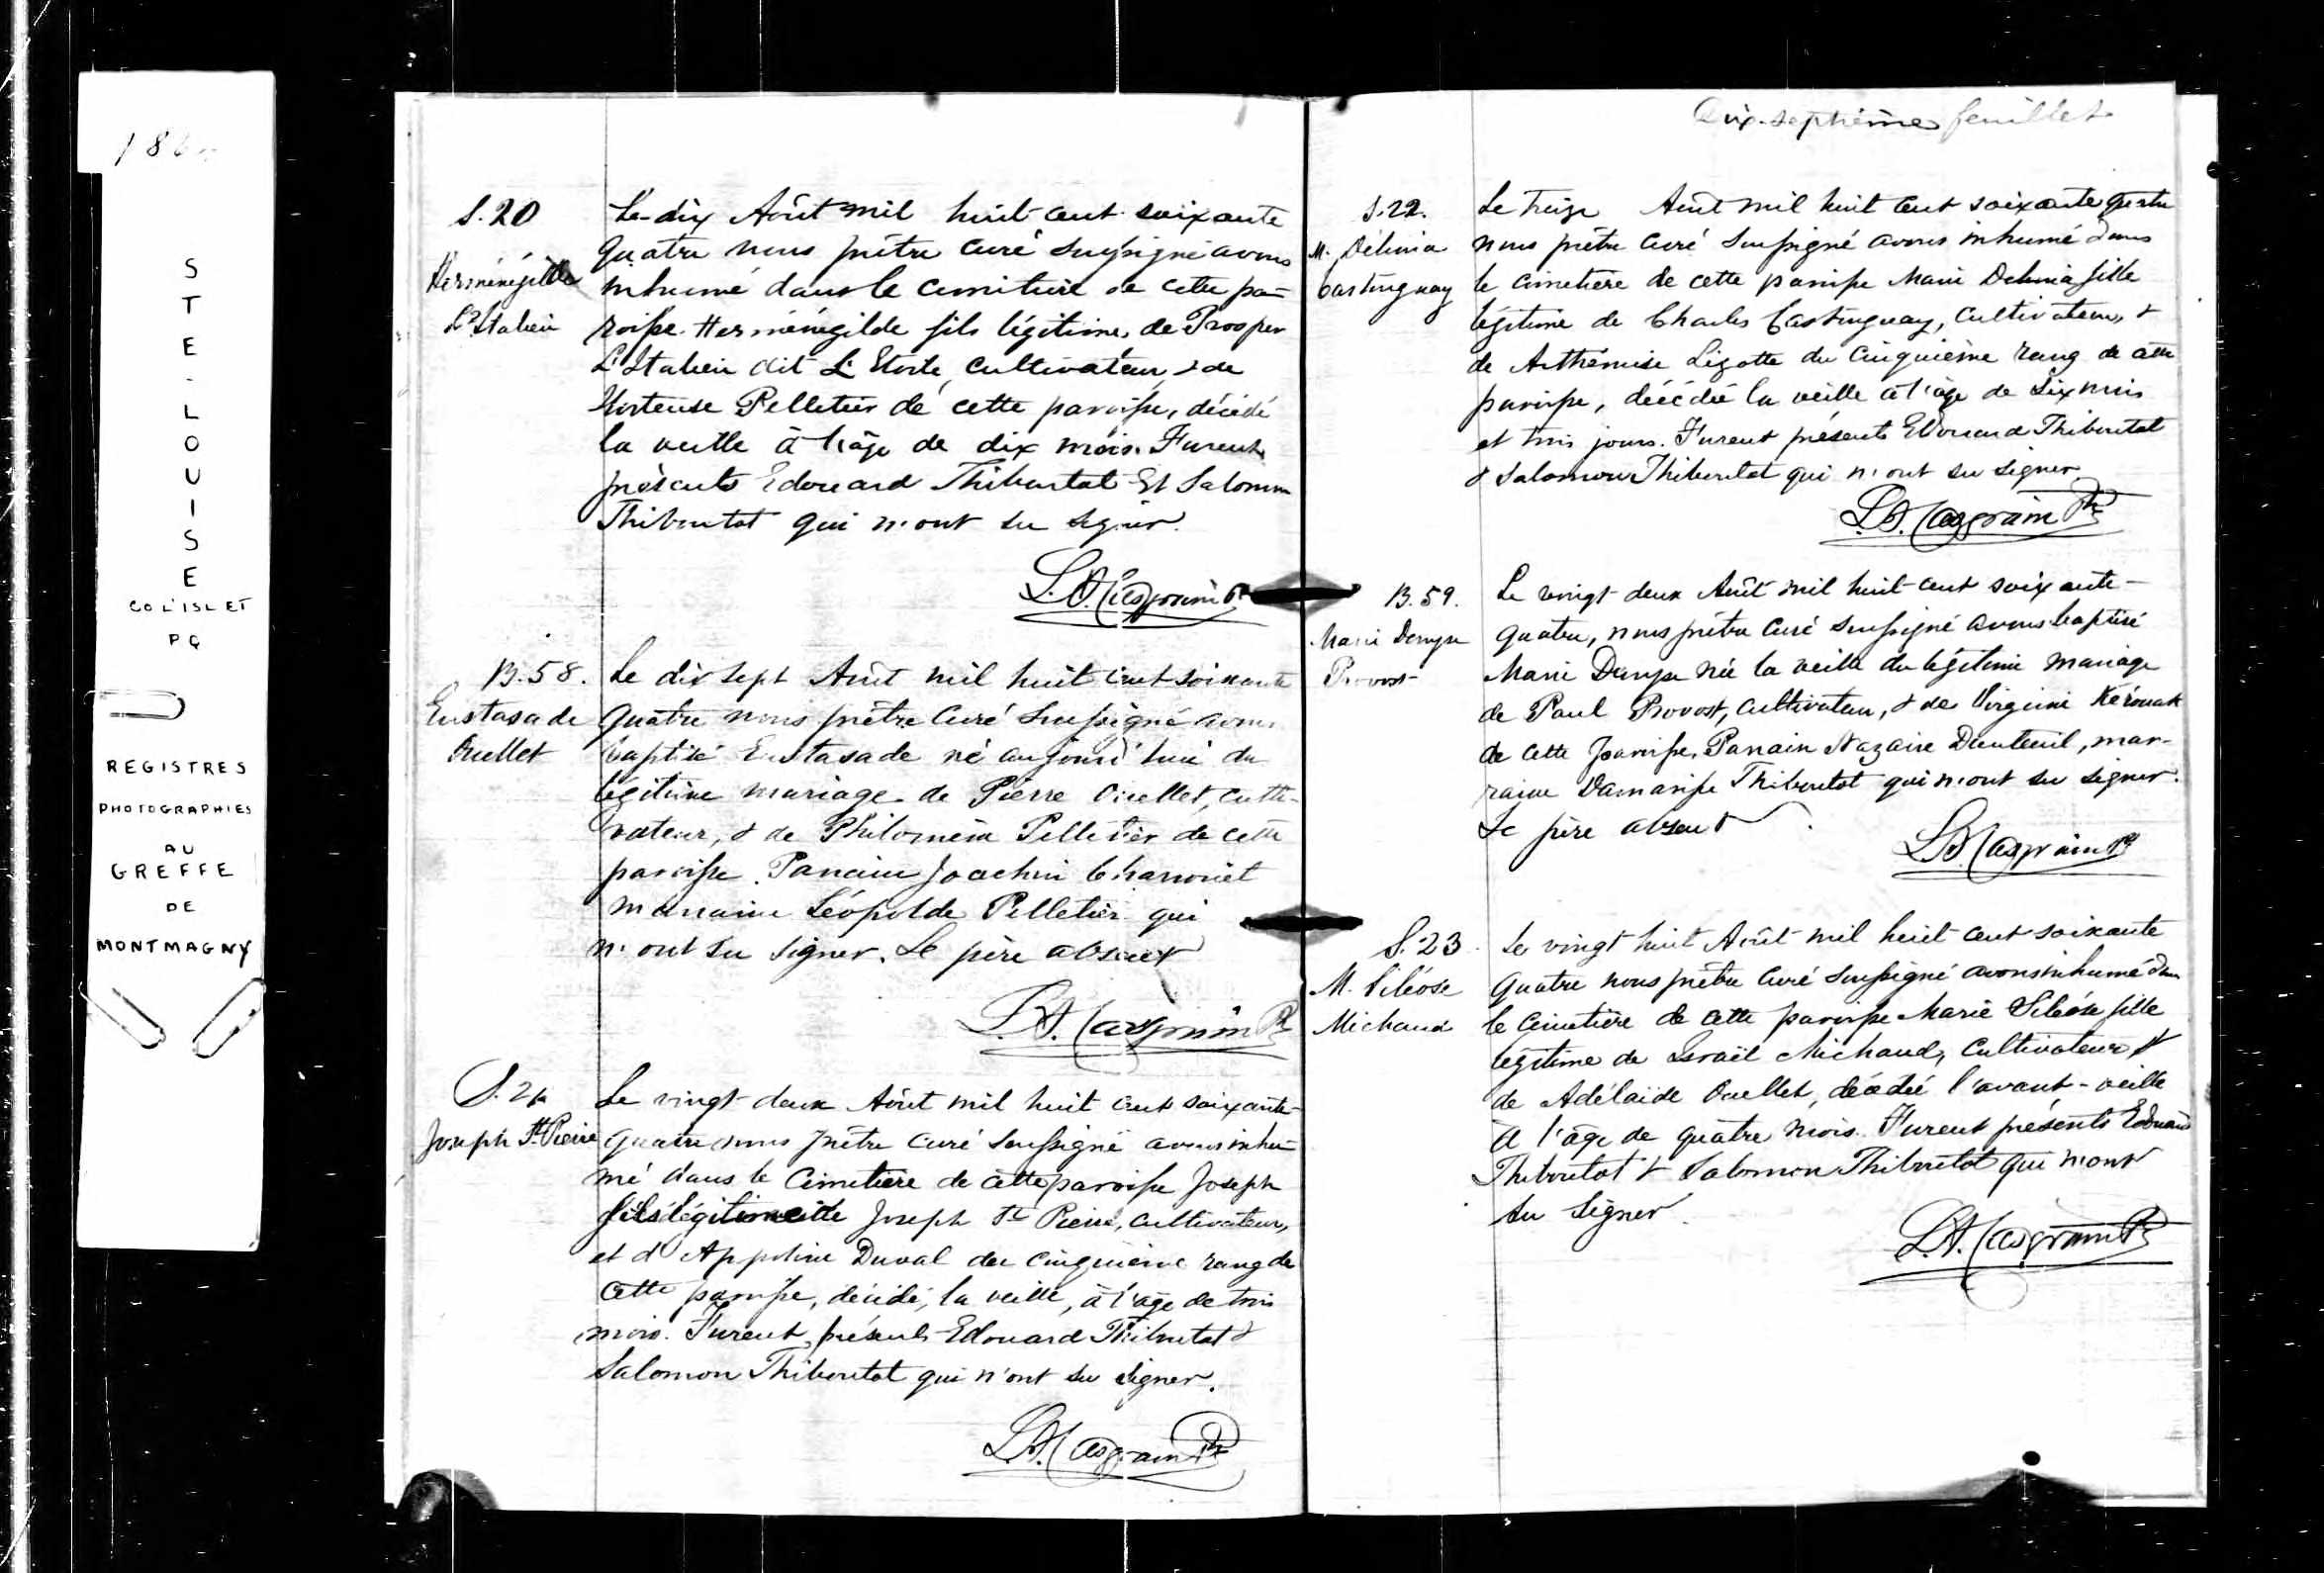 186
STE-LOUISE
CO L'ISLET
PQ
REGISTRES
PHOTOGRAPHIES
AU
GREFFE
DE
MONTMAGNY
S. 20
Herménégilde
L'Italien
Le dix Août mil huit cent soixante
quatre nous prêtre curé soussigné avons
inhumé dans le cimetière de cette pa-
roisse Herménégilde fils légitime de Prosper
L'Italien dit L'Etoile, cultivateur, & de
Hortense Pelletier de cette paroisse, décédé
la veille à l'âge de dix mois. Furent
présents Edouard Thiboutot Et Salomon
Thiboutot qui n'ont su signer.
L.A. Casgrain Ptr
B. 58.
Eustasade
Ouellet
Le dix sept Août mil huit cent soixante
quatre nous prêtre Curé soussigné avons
baptisé Eustasade né aujourd'hui du
légitime mariage de Pierre Ouellet, culti-
vateur, & de Philomène Pelletier de cette
paroisse. Parrain Joachim
marraine Léopolde Pelletier qui
n'ont su signer. Le père absent
L.A. Casgrain Ptr
S. 21
Joseph St. Pierre
Le vingt-deux Août mil huit cent soixante-
quatre nous prêtre curé soussigné avons inhu-
mé dans le Cimetière de cette paroisse Joseph
fils légitime de Joseph St. Pierre, cultivateur,
et d'Appoline Duval du cinquième rang de
cette paroisse, décédé, la veille, à l'âge de trois
mois. Furent présents Edouard Thiboutot &
Salomon Thiboutot qui n'ont su signer.
L.A. Casgrain Ptr
Dix-septième feuillet
S. 22.
M. Délima
Castinguay
Le treize Août mil huit cent soixante quatre
nous prêtre curé soussigné avons inhumé dans
le cimetière de cette paroisse Marie Delima fille
légitime de Charles Castinguay, cultivateur, &
de Arthémise Lizotte du cinquième rang de cette
paroisse, décédée la veille à l'âge de six mois
et trois jours. Furent présents Edouard Thiboutot
& Salomon Thiboutot qui n'ont su signer
L.A. Casgrain Ptr
B. 59.
Marie Denyse
Provost
Le vingt-deux Août mil huit cent soixante-
quatre, nous prêtre Curé soussigné avons baptisé
Marie Denyse née la veille du légitime mariage
de Paul Provost, cultivateur, & de Virginie Kérouak
de cette paroisse. Parrain Nazaire Dauteuil, mar-
raine Damarisse Thiboutot qui n'ont su signer.
Le père absent.
L.A. Casgrain Ptr
S. 23
M.
Michaud
Le vingt huit Août mil huit cent soixante
quatre nous prêtre Curé soussigné avons inhumé dans
le Cimetière de cette paroisse Marie fille
légitime de Israël Michaud, cultivateur &
de Adélaïde Ouellet, décédée l'avant-veille
à l'âge de quatre mois. Furent présents Edouard
Thiboutot & Salomon Thiboutot qui n'ont
su signer.
L.A. Casgrain Ptr